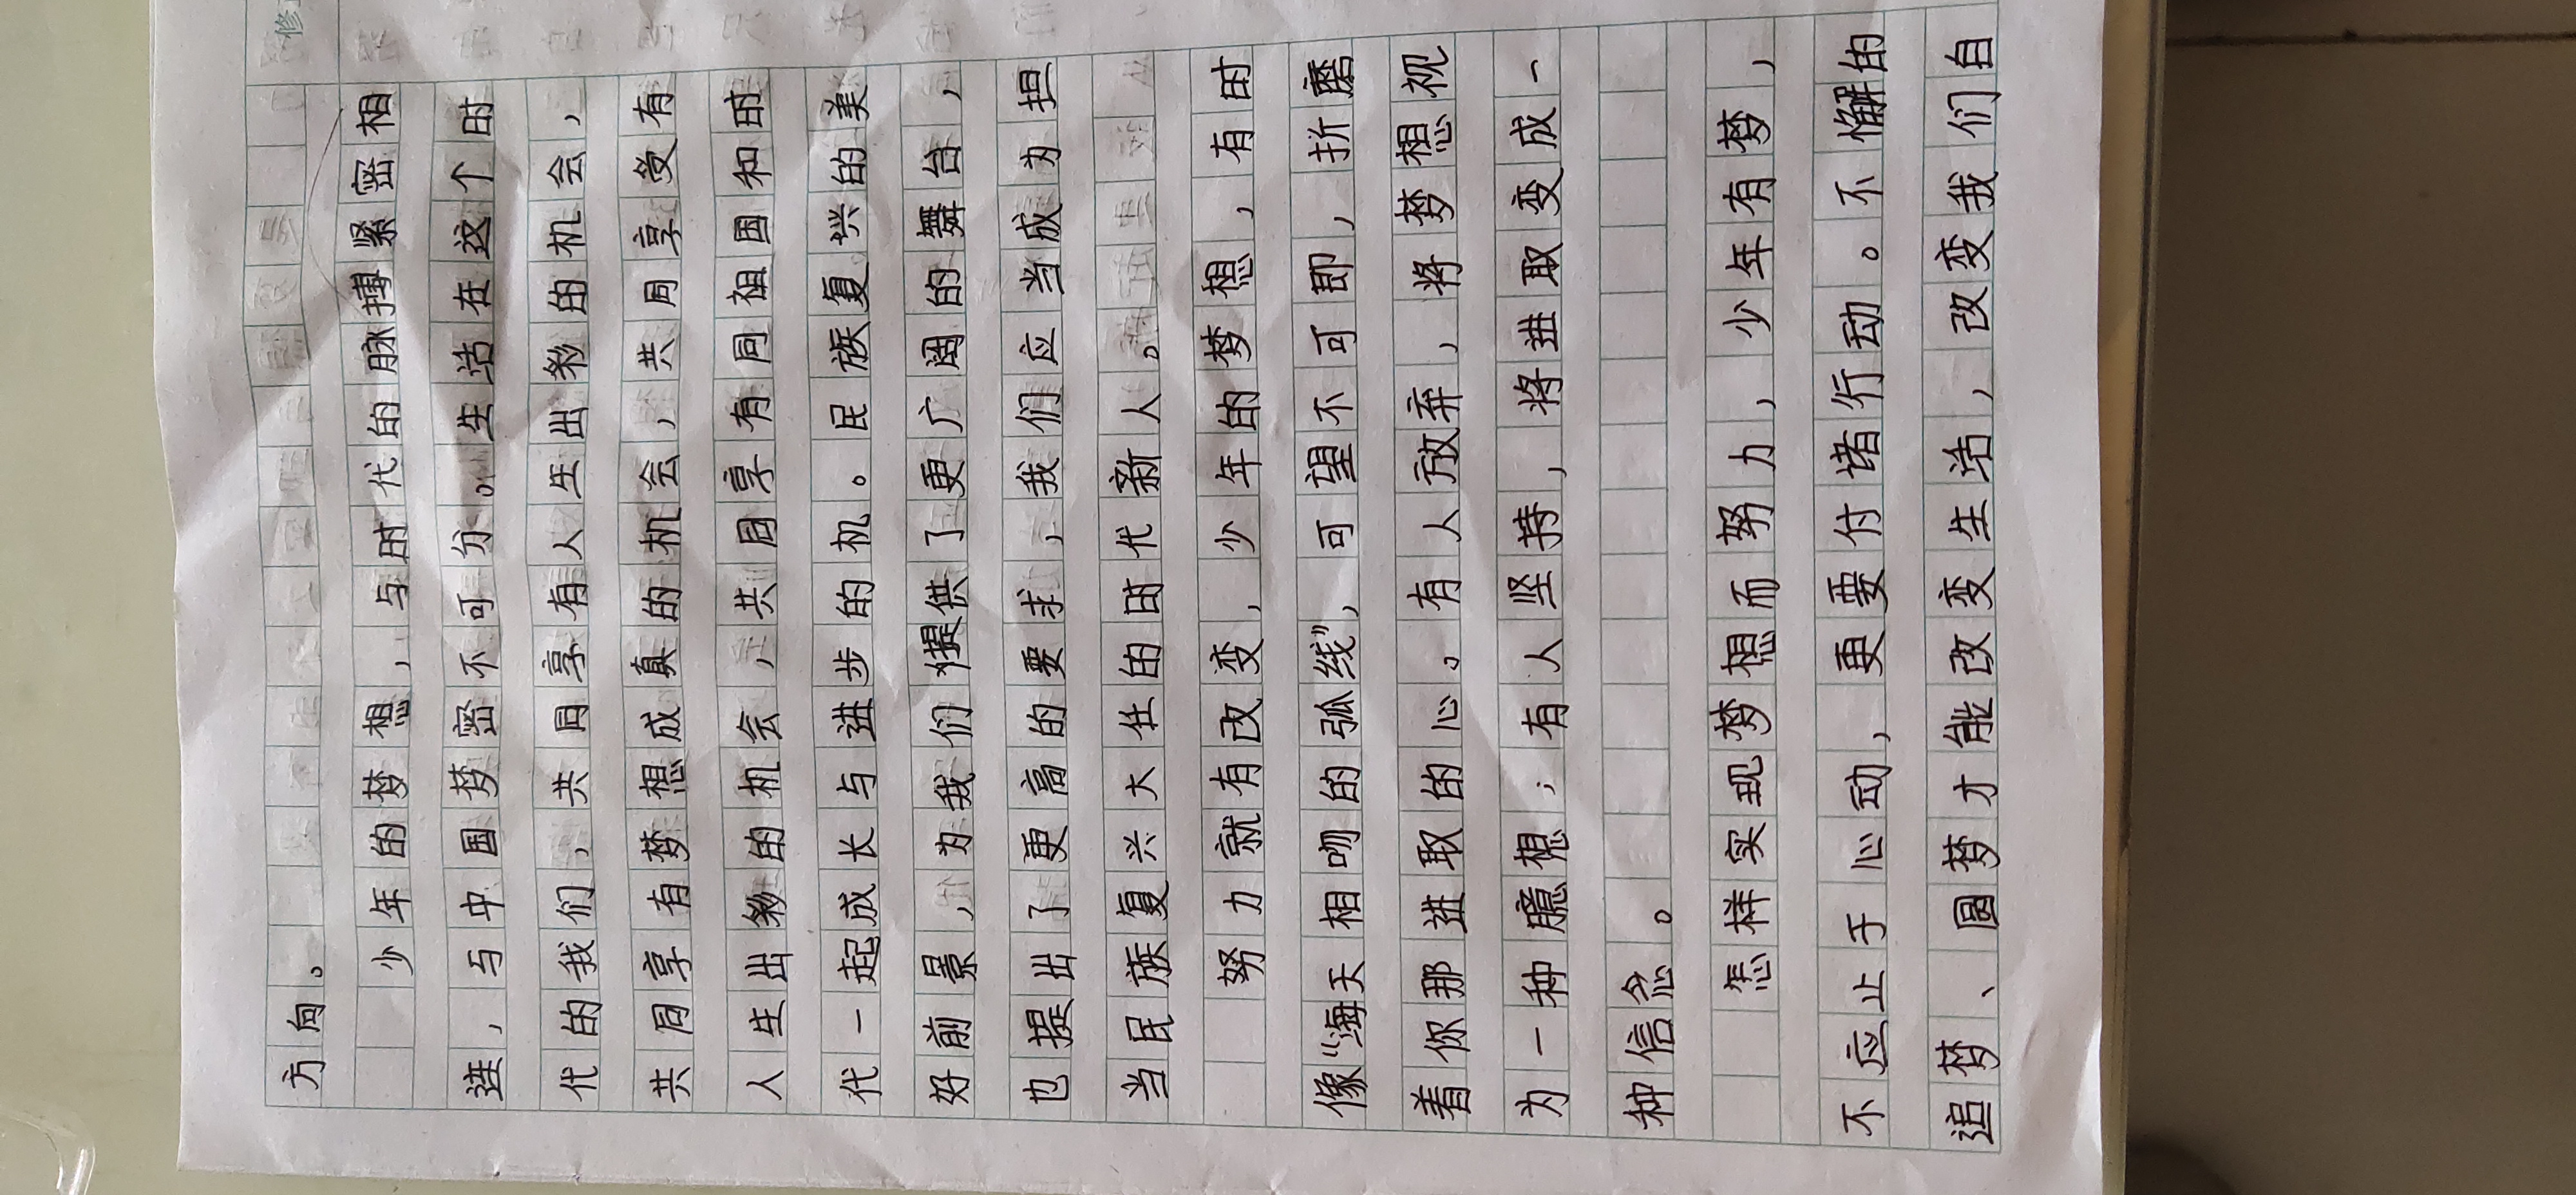 方向。
少年的梦想,与时代的脉搏紧密相
连,与中国梦密不可分。生活在这个时
代的我们,共同享有人生出彩的机会,
共同享有梦想成真的机会,共同享受有
人生出彩的机会,共同享有同祖国和时
代一起成长与进步的机。民族复兴的美
好前景,为我们提供了更广阔的舞台,
也提出了更高的要求,我们应当成为担
当民族复兴大任的时代新人。
努力就有改变,少年的梦想,有时
像“海天相吻的弧线”,可望不可即,折磨
着你那进取的心。有人放弃,将梦想视
为一种臆想;有人坚持,将进取变成一
种信念。
怎样实现梦想而努力,少年有梦,
不应止于心动,更要付诸行动。不懈的
追梦、圆梦才能改变生活,改变我们自